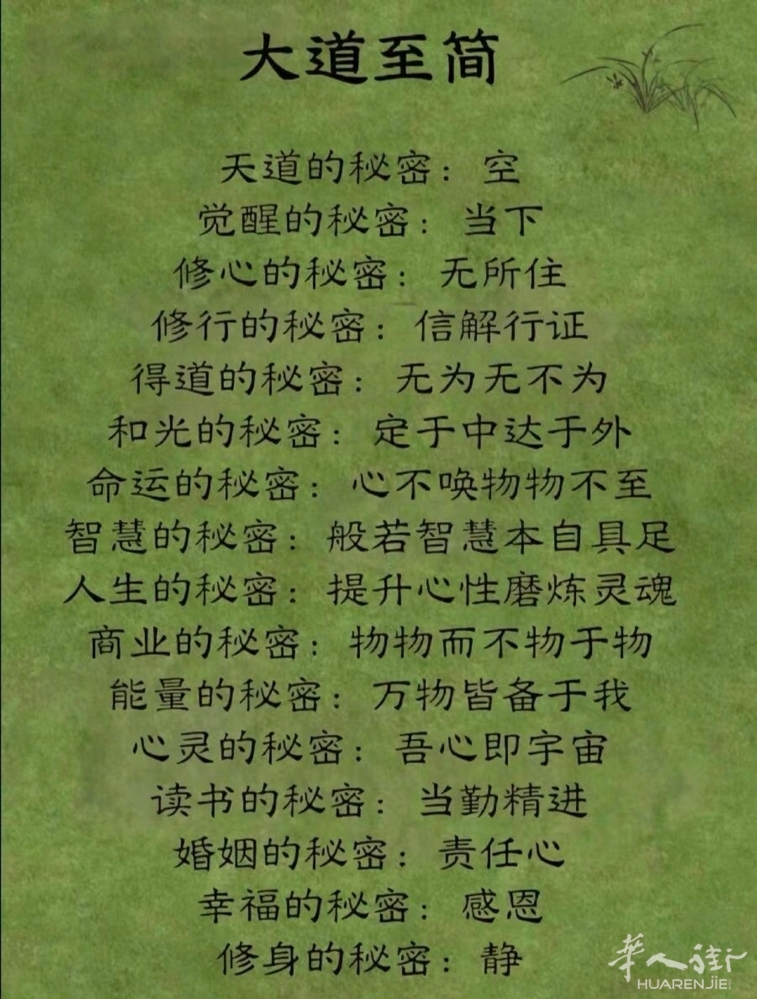 大道至简
天道的秘密：空
觉醒的秘密：当下
修心的秘密：无所住
修行的秘密：信解行证
得道的秘密：无为无不为
和光的秘密：定于中达于外
命运的秘密：心不唤物物不至
智慧的秘密：般若智慧本自具足
人生的秘密：提升心性磨炼灵魂
商业的秘密：物物而不物于物
能量的秘密：万物皆备于我
心灵的秘密：吾心即宇宙
读书的秘密：当勤精进
婚姻的秘密：责任心
幸福的秘密：感恩
修身的秘密：静
華人街
HUARENJIE